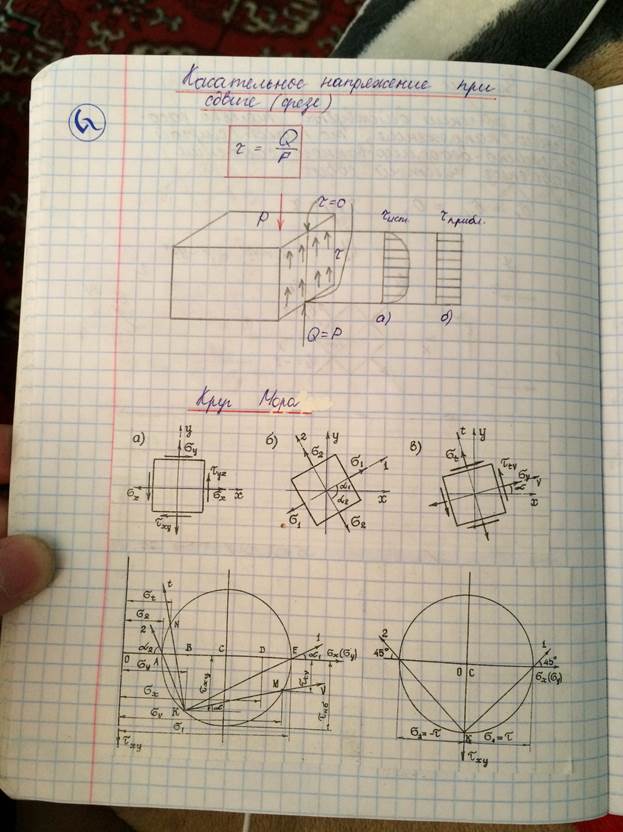 Касательное напряжение при
сдвиге (срезе)
5
τ = Q/F
P
τ=0
τ
τист.
τприбл.
а)
б)
Q=P
Круг Мора
а)
y
σy
τyx
σx
σx
x
τxy
б)
2
y
σ2
σ1
1
α1
α2
x
σ1
σ2
в)
t
y
σt
τtν
σν
ν
α
x
σt
t
σ2
2
N
α2
O
A
B
C
D
E
1
α1
σx(σy)
σy
τxy
M
τtν
ν
σx
K
α
σν
σ1
τxy
2
45°
O
C
1
45°
σx(σy)
K
σ2=-τ
σ1=τ
τxy